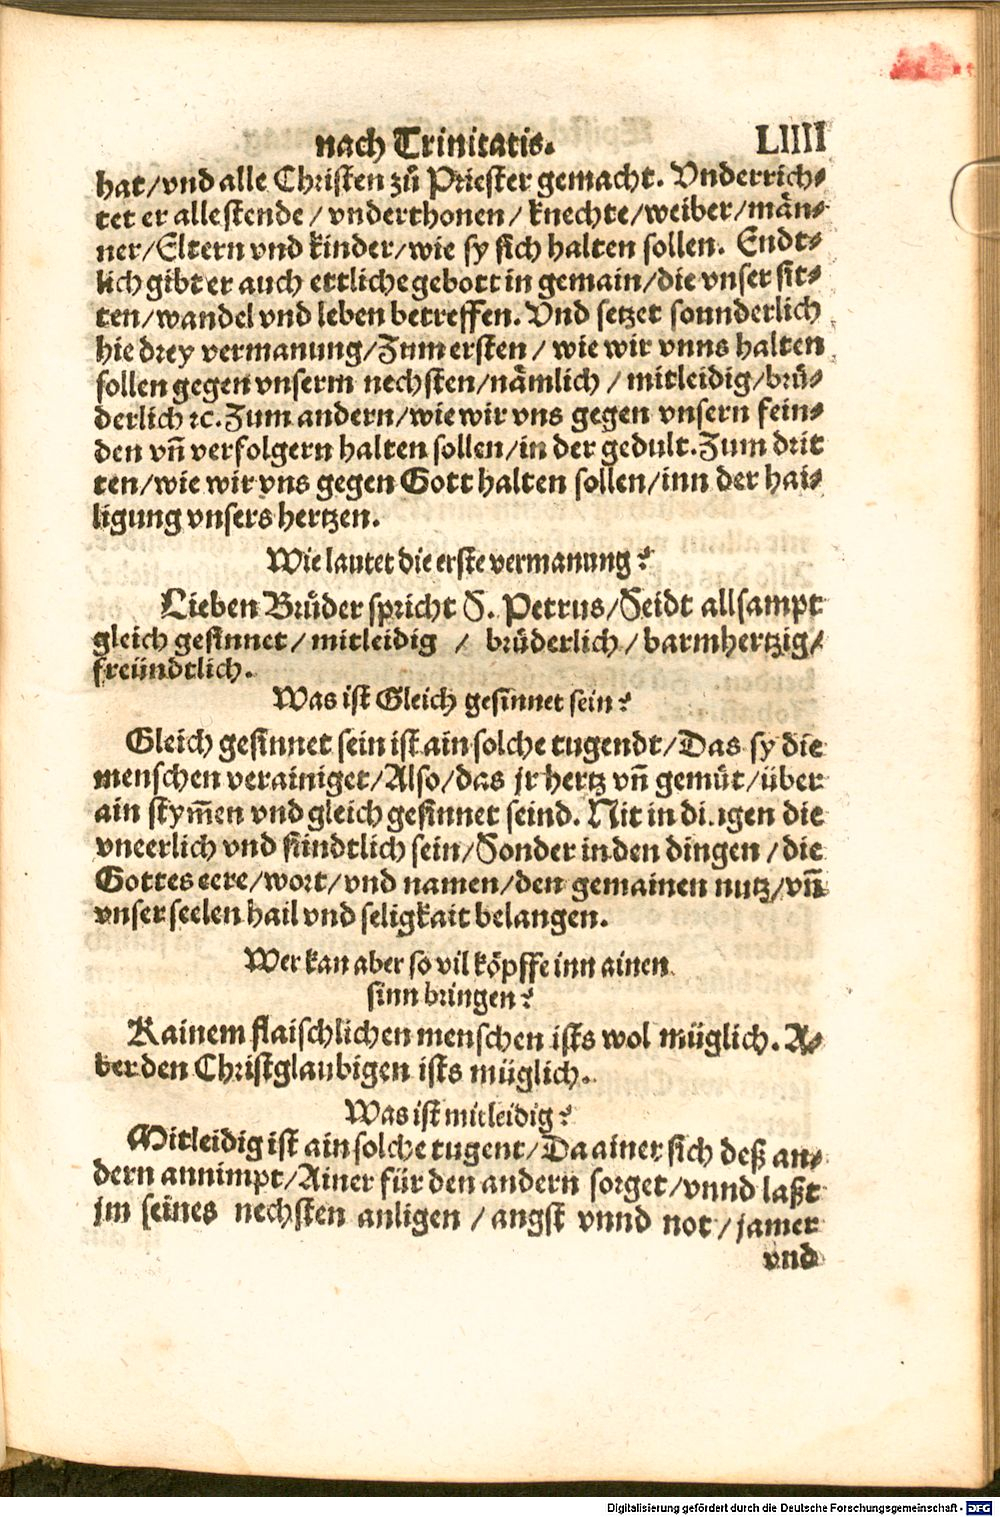 nach Trinitatis. LIIII
hat/vnd alle Christen zů Priester gemacht. Vnderrich⸗
tet er alle stende / vnderthonen / knechte/weiber/män⸗
ner/Eltern vnd kinder/wie sy sich halten sollen. Endt⸗
lich gibt er auch ettliche gebott in gemain/die vnser sit⸗
ten/wandel vnd leben betreffen. Vnd setzet sounderlich
hie drey vermanung/Zum ersten / wie wir vnns halten
sollen gegen vnserm nechsten/nämlich / mitleidig/brü⸗
derlich ꝛc. Zum andern/wie wir vns gegen vnsern fein⸗
den vñ verfolgern halten sollen/in der gedult. Zum drit
ten/wie wir vns gegen Gott halten sollen/inn der hai⸗
ligung vnsers hertzen.
Wie lautet die erste vermanung?
Lieben Brüder spricht S. Petrus/Seidt allsampt
gleich gesinnet / mitleidig / brüderlich / barmhertzig/
freündtlich.
Was ist Gleich gesinnet sein?
Gleich gesinnet sein ist ain solche tugendt/Das sy die
menschen verainiget/Also/das jr hertz vñ gemüt/über
ain stym̃en vnd gleich gesinnet seind. Nit in dingen die
vneerlich vnd sündtlich sein/Sonder in den dingen / die
Gottes eere/wort/vnd namen/den gemainen nutz/vñ
vnser seelen hail vnd seligkait belangen.
Wer kan aber so vil köpffe inn ainen
sinn bringen?
Kainem flaischlichen menschen ists wol müglich. A⸗
ber den Christglaubigen ists müglich.
Was ist mitleidig?
Mitleidig ist ain solche tugent/Da ainer sich deß an⸗
dern annimpt/Ainer für den andern sorget/vnnd laßt
jm seines nechsten anligen / angst vnnd not / jamer
vnd
Digitalisierung gefördert durch die Deutsche Forschungsgemeinschaft - DFG